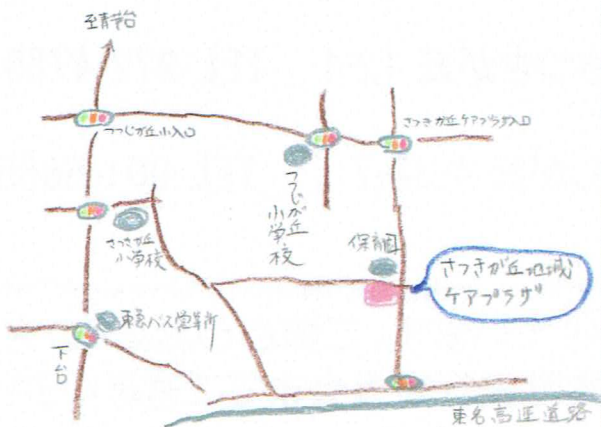 至青葉台
つつじが丘小入口
さつきが丘ケアプラザ入口
つつじが丘
小学校
さつきが丘
小学校
保育園
さつきが丘地域
ケアプラザ
東急バス営業所
下台
東名高速道路